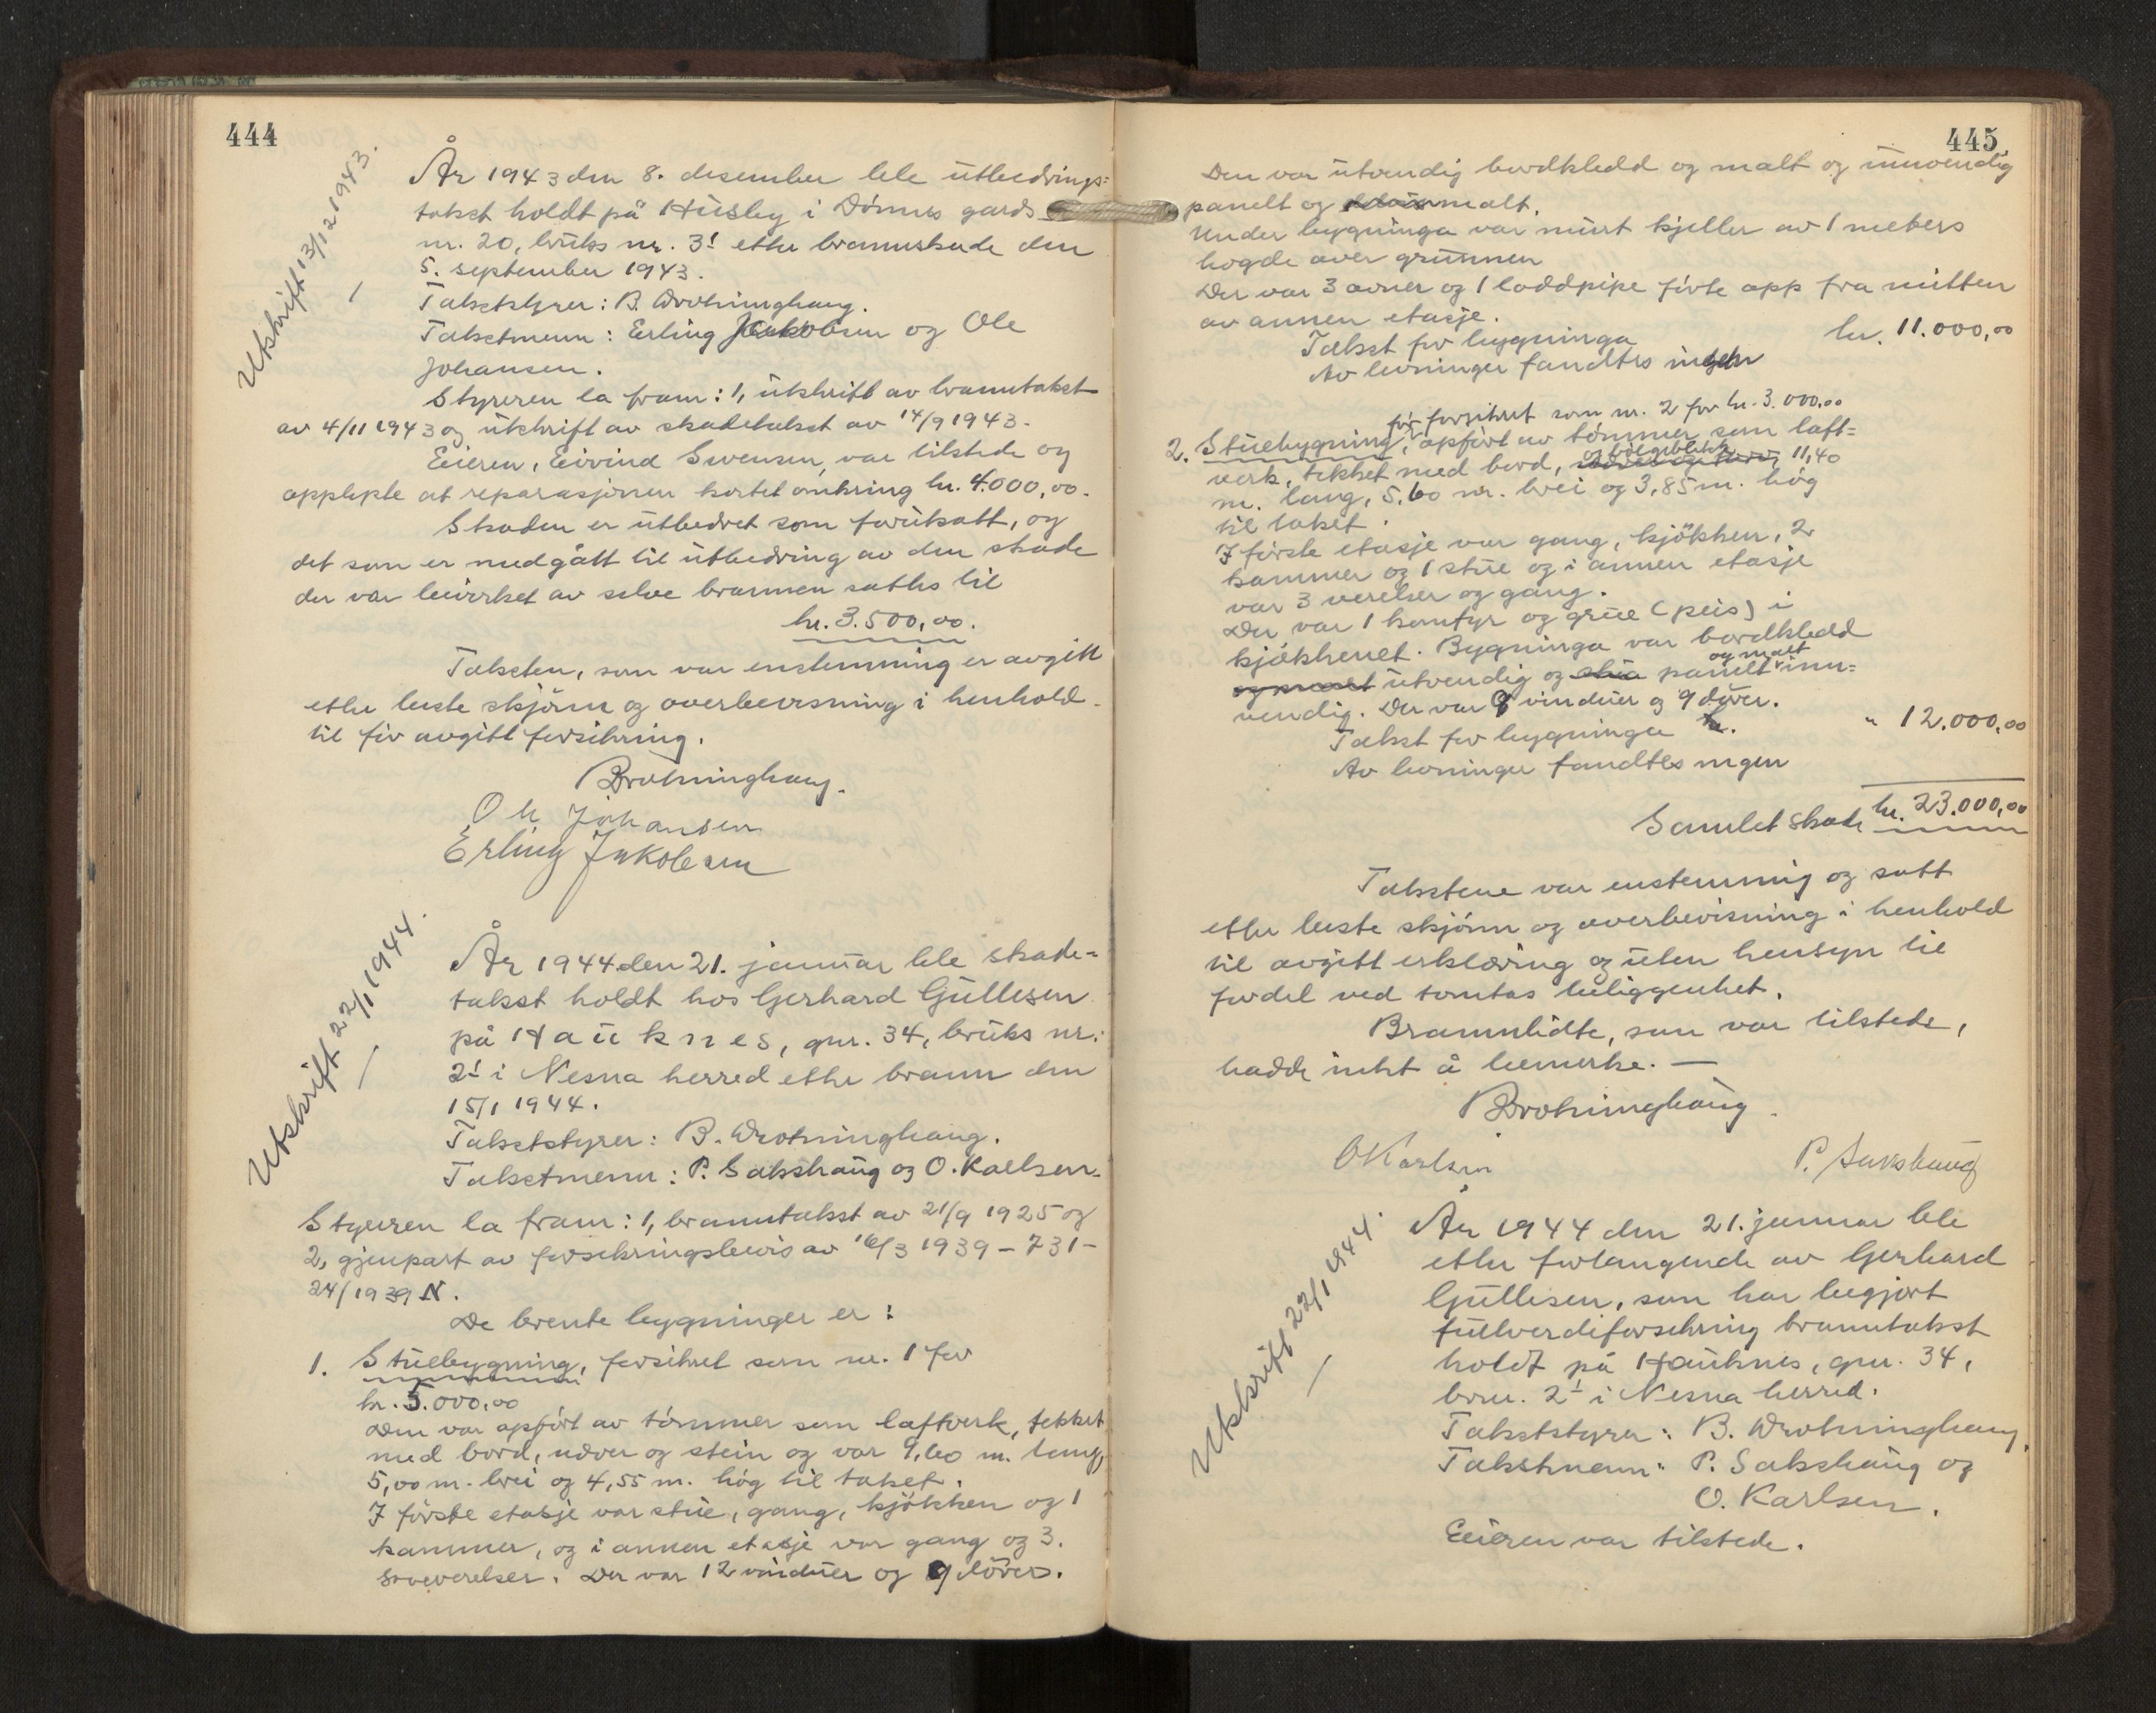 444
Utskrift 13/12 1943.
År 1943 den 8. desember ble utbedrings=
takst holdt på Husby i Dønnes gards
nr. 20, bruks nr. 3¹ etter brannskade den
5. september 1943.
Takststyrer: B. Drotninghaug.
Takstmenn: Erling Jakobsen og Ole
Johansen.
Styreren la fram: 1, utskrift av branntakst
av 4/11 1943 og utskrift av skadetakst av 14/9 1943.
Eieren, Eivind Svensen, var tilstede og
opplyste at reparasjonen kostet omkring kr. 4.000,00.
Skaden er utbedret som forutsatt, og
det som er medgått til utbedring av den skade
der var bevirket av selve brannen sattes til
kr. 3.500,00.
Taksten, som var enstemmig er avgitt
etter beste skjønn og overbevisning i henhold
til før avgitt forsikring.
BDrotninghaug.
Ole Johansen
Erling Jakobsen
Utskrift 22/1 1944.
År 1944 den 21. januar ble skade=
takst holdt hos Gerhard Gullesen
på Hauknes, gnr. 34, bruks nr.
2¹ i Nesna herred etter brann den
15/1 1944.
Takststyrer: B. Drotninghaug.
Takstmenn: P. Sakshaug og O. Karlsen.
Styreren la fram: 1, branntakst av 21/9 1925 og
2, gjenpart av forsikringsbevis av 16/3 1939 - 731 -
24/1939 N.
De brente bygninger er:
1. Stuebygning, forsikret som nr. 1 for
kr. 5.000,00
Den var opført av tømmer som laftverk, tekket
med bord, never og stein og var 9,60 m. lang,
5,00 m. brei og 4,55 m. høg til taket.
I første etasje var stue, gang, kjøkken og 1
kammer, og i annen etasje var gang og 3.
soveverelser. Der var 12 vinduer og 9 dører.
445
Den var utvendig bordkledd og malt og innvendig
panelt og malt.
Under bygninga var murt kjeller av 1 meters
høgde over grunnen
Der var 3 ovner og 1 loddpipe førte opp fra midten
av annen etasje.
Takst for bygninga kr. 11.000,00
Av levninger fandtes ingen
før forsikret som nr. 2 for kr. 3.000,00
2. Stuebygning, opført av tømmer som laft=
verk, tekket med bord, og bølgeblikk, 11,40
m. lang, 5,60 m. brei og 3,85 m. høg
til taket.
I første etasje var gang, kjøkken, 2
kammer og 1 stue og i annen etasje
var 3 verelser og gang.
Der var 1 komfyr og grue (peis) i
kjøkkenet. Bygninga var bordkledd
og malt
utvendig og panelt inn=
vendig. Der var 8 vinduer og 9 dører.
Takst for bygninga " 12.000,00
Av levninger fandtes ingen
Samlet skade kr. 23.000,00
Takstene var enstemmig og satt
etter beste skjønn og overbevisning i henhold
til avgitt erklæring og uten hensyn til
fordel ved tomtas beliggenhet.
Brannlidte, som var tilstede,
hadde intet å bemerke. —
BDrotninghaug.
OKarlsen
P. Sakshaug
Utskrift 22/1 1944.
År 1944 den 21. januar ble
etter forlangende av Gerhard
Gullesen, som har begjært
fullverdiforsikring branntakst
holdt på Hauknes, gnr. 34,
brnr. 2¹ i Nesna herred.
Takststyrer: B. Drotninghaug.
Takstmenn: P. Sakshaug og
O. Karlsen.
Eieren var tilstede.